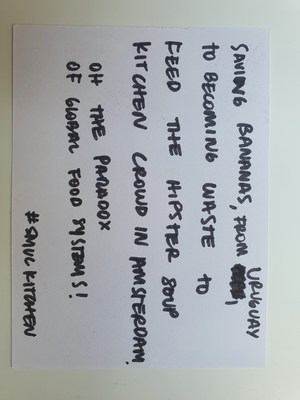 SAVING BANANAS, FROM URUGUAY,
TO BECOMING WASTE TO
FEED THE HIPSTER SOUP
KITCHEN CROWD IN AMSTERDAM.
OH THE PARADOX
OF GLOBAL FOOD SYSTEMS!
KITCHEN